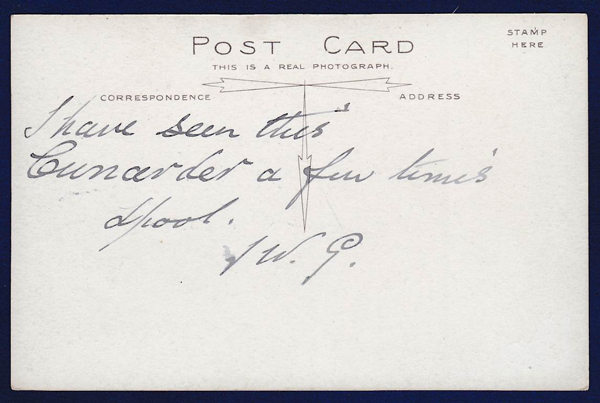 POST CARD
THIS IS A REAL PHOTOGRAPH.
STAMP
HERE
CORRESPONDENCE
ADDRESS
I have seen this
Cunarder a few time's
L'pool.
J W. G.